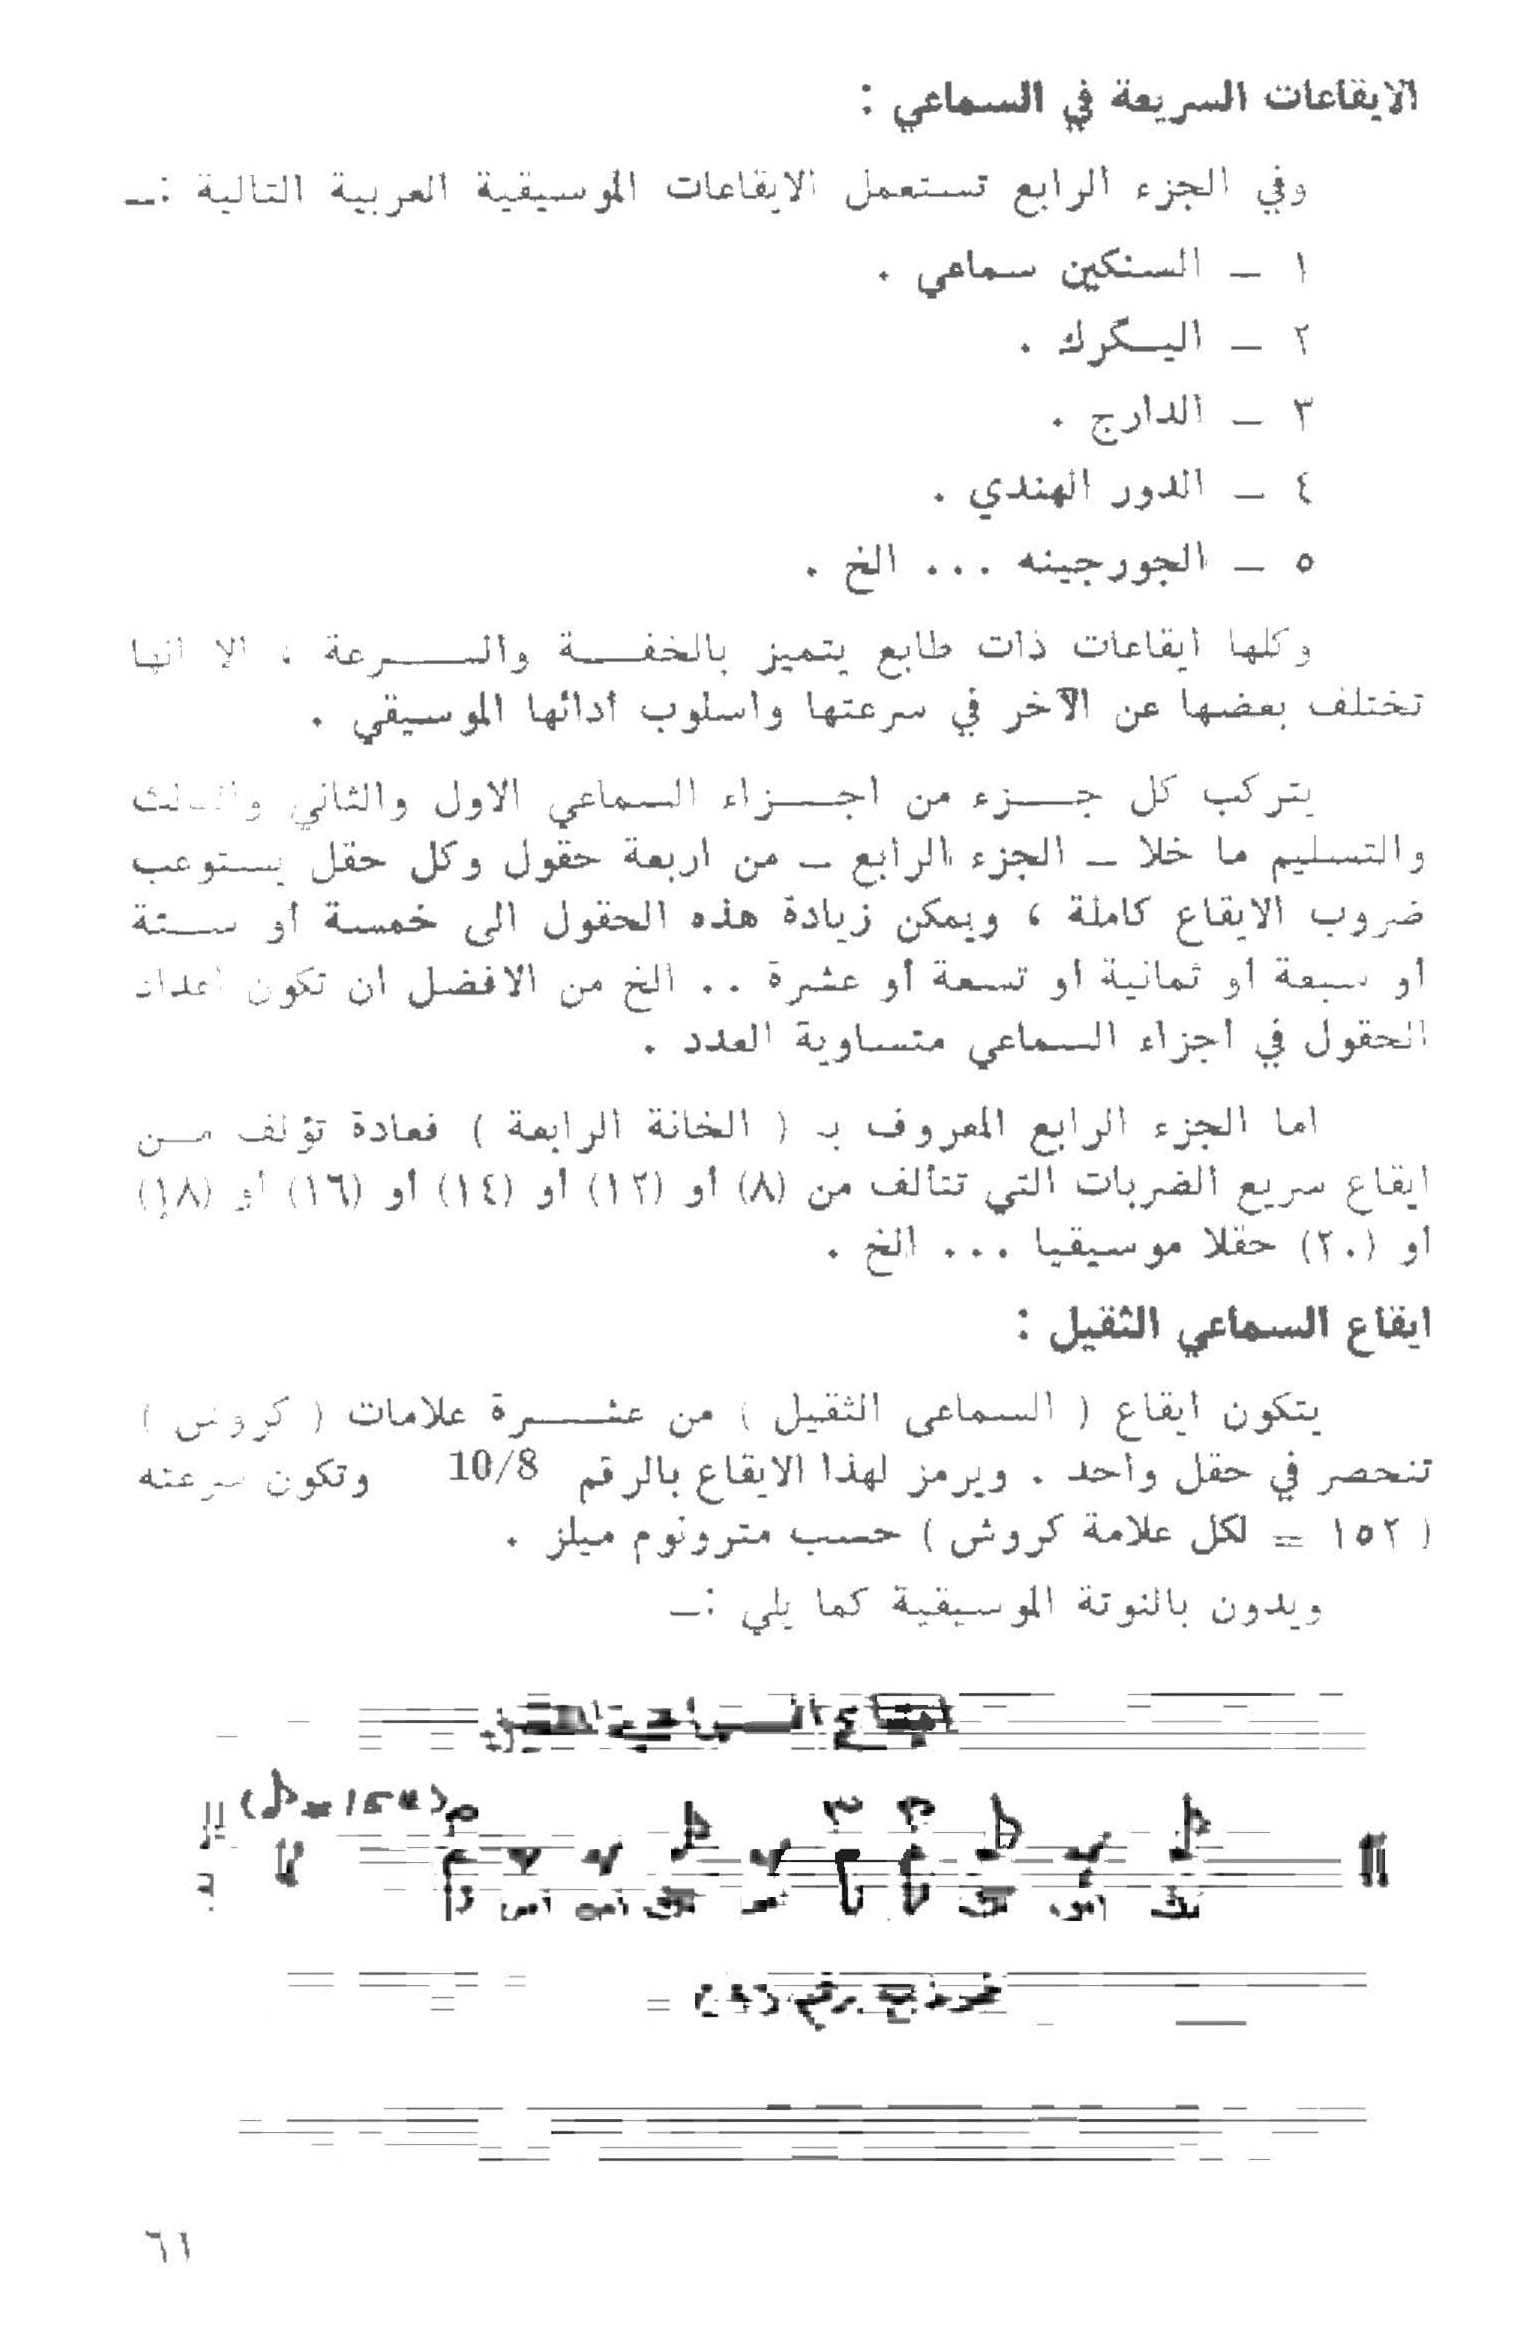 الايقاعات السريعة في السماعي :
وفي الجزء الرابع تستعمل الايقاعات الموسيقية العربية التالية :ــ
١ ــ السنكين سماعي .
٢ ــ اليكرك .
٣ ــ الدارج .
٤ ــ الدور الهندي .
٥ ــ الجورجينه ... الخ .
وكلها ايقاعات ذات طابع يتميز بالخفة والسرعة ، الا انها
تختلف بعضها عن الآخر في سرعتها واسلوب أدائها الموسيقي .
يتركب كل جزء من اجزاء السماعي الاول والثاني والثالث
والتسليم ما خلا ــ الجزء الرابع ــ من اربعة حقول وكل حقل يستوعب
ضروب الايقاع كاملة ، ويمكن زيادة هذه الحقول الى خمسة أو ستة
أو سبعة أو ثمانية أو تسعة أو عشرة .. الخ من الافضل ان تكون اعداد
الحقول في اجزاء السماعي متساوية العدد .
اما الجزء الرابع المعروف بـ ( الخانة الرابعة ) فعادة تؤلف من
ايقاع سريع الضربات التي تتألف من (٨) أو (١٢) أو (١٤) أو (١٦) أو (١٨)
أو (٢٠) حقلا موسيقيا ... الخ .
ايقاع السماعي الثقيل :
يتكون ايقاع ( السماعى الثقيل ) من عشرة علامات ( كروش )
تنحصر في حقل واحد . ويرمز لهذا الايقاع بالرقم 10/8 وتكون سرعته
( ١٥٢ = لكل علامة كروش ) حسب مترونوم ميلز .
ويدون بالنوتة الموسيقية كما يلي :ــ
ايقاع السماعي الثقيل
نموذج رقم
٦١